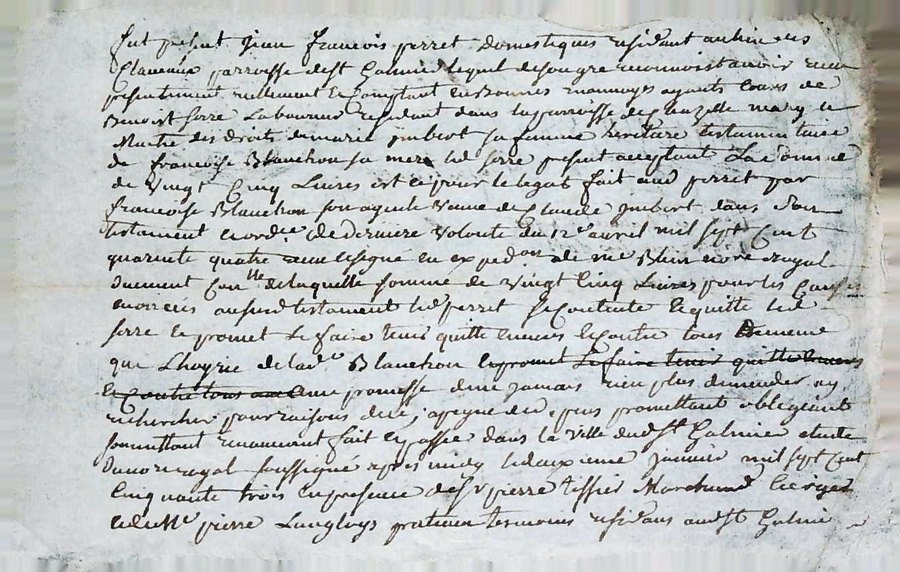 fut présent jean francois perret Domestiques residant au lieu des
Claveaux parroisse de st Galmier lequel de son gre reconnoist avoir receu
présentement reellement et comptant en bonnes monnoyes ayants cours de
Benoist serre Laboureur residant dans la parroisse de Chazelle mary et
Maitre des droits de marie jmbert sa femme heritiere testamentaire
de francoise Blanchon sa mere led serre présent acceptant La somme
de vingt Cinq Livres et ce pour le legat fait aud perret par
francoise Blanchon son ayeule veuve de Claude jmbert dans son
testament et ordre de derniere volonté du 12e avril mil sept Cent
quarente quatre en expedon de me Blein nore royal
de laquelle somme de vingt Cinq Livres pour les Causes
enoncées aud testament led perret se Contente et quitte led
serre et promet Le faire tenir quitte envers et Contre tous
que L'hoyrie de lad. Blanchon et promet Le faire tenir quitte envers
et Contre tous avec promesse de ne jamais rien plus demender ny
rechercher pour raisons de ce, a peyne de, promettant obligeant
soumettant renoncant fait et passé dans la ville dud st Galmier etude
du nore royal soussigné apres midy le deuxieme janvier mil sept Cent
Cinquante trois en presence de sr pierre tissier Marchand
et de Me pierre Langloys praticien temoins residans aud st Galmier